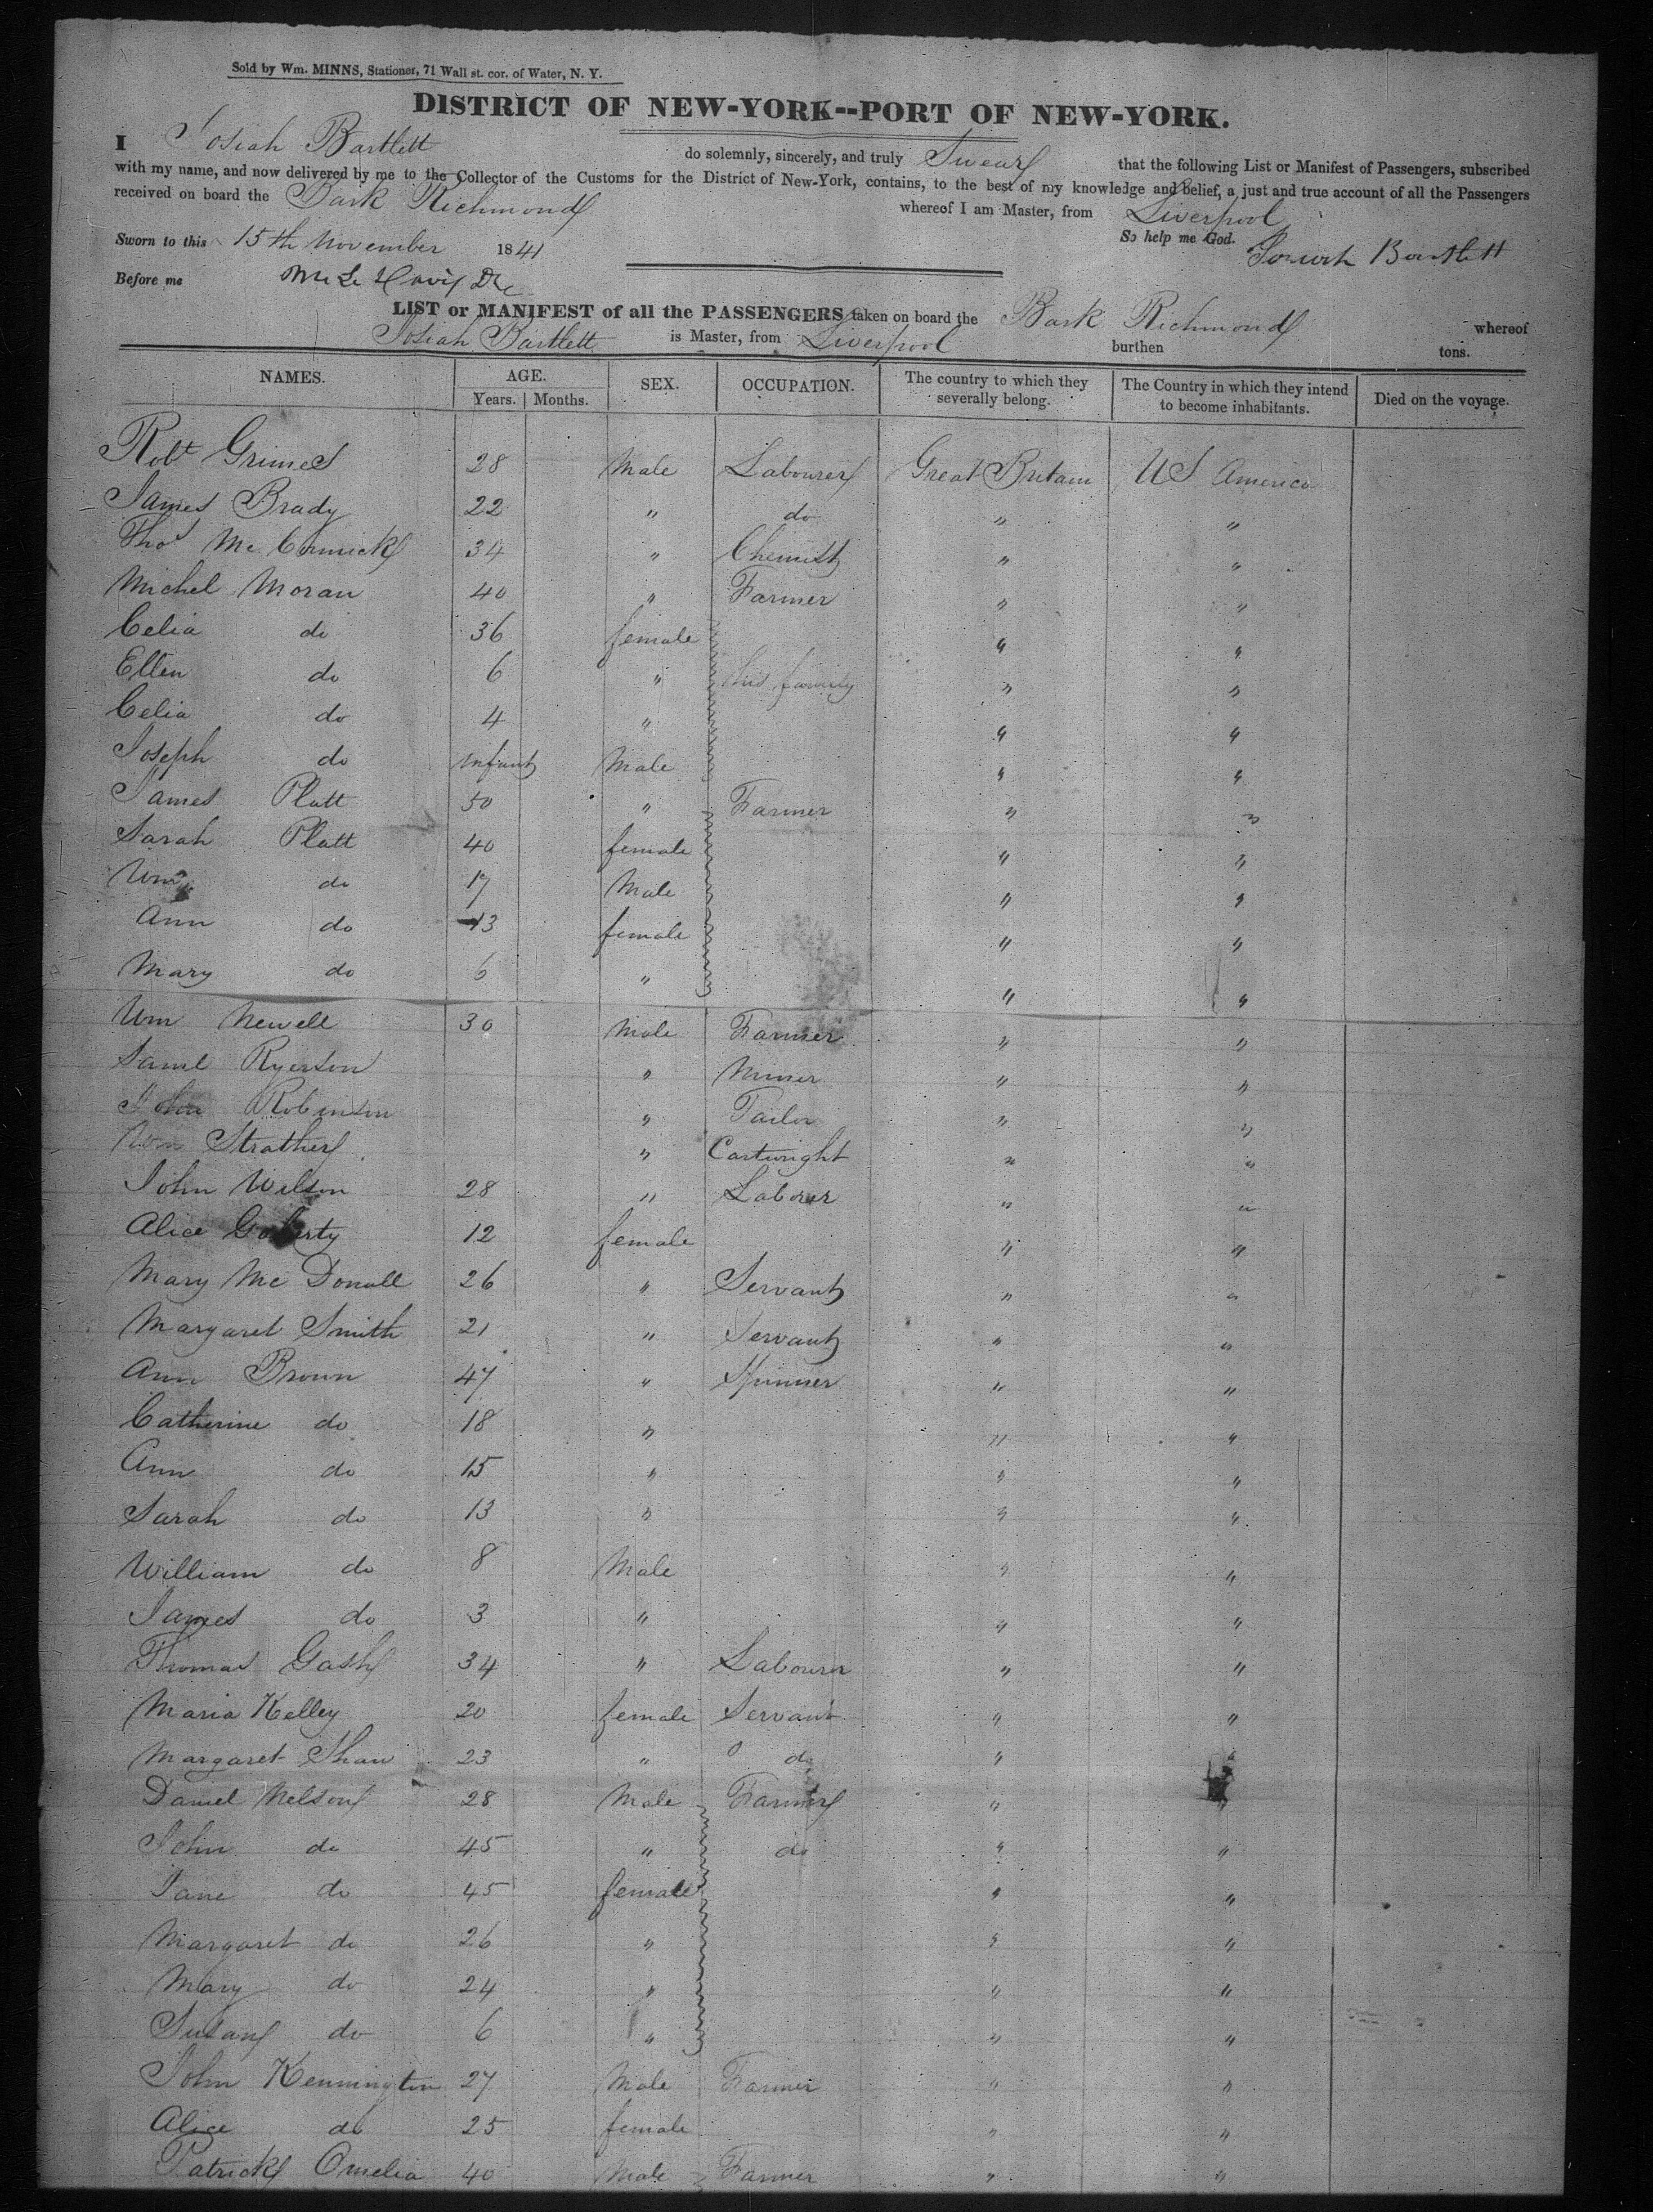 Sold by Wm. MINNS, Stationer, 71 Wall st. cor. of Water, N. Y.
DISTRICT OF NEW-YORK--PORT OF NEW-YORK.
I Josiah Bartlett do solemnly, sincerely, and truly Swear that the following List or Manifest of Passengers, subscribed
with my name, and now delivered by me to the Collector of the Customs for the District of New-York, contains, to the best of my knowledge and belief, a just and true account of all the Passengers
received on board the Bark Richmond whereof I am Master, from Liverpool
Sworn to this 15th November 1841 So help me God.
Josiah Bartlett
Before me
LIST or MANIFEST of all the PASSENGERS taken on board the Bark Richmond whereof
Josiah Bartlett is Master, from Liverpool burthen tons.
NAMES. AGE. SEX. OCCUPATION. The country to which they severally belong. The Country in which they intend to become inhabitants. Died on the voyage.
Years. Months.
Robt Grimes 28 Male Labourer Great Britain US America
James Brady 22 " do " "
Thos McCormick 34 " Chemist " "
Michel Moran 40 " Farmer " "
Celia do 36 female " "
Ellen do 6 " his family " "
Celia do 4 " " "
Joseph do infant Male " "
James Platt 50 " Farmer " "
Sarah Platt 40 female " "
Wm do 17 Male " "
Ann do 13 female " "
Mary do 6 " " "
Wm Newell 30 Male Farmer " "
Saml Ryerson " Miner " "
John Robinson " Tailor " "
Wm Strather " Cartwright " "
John Wilson 28 " Laborer " "
Alice 12 female " "
Mary Mc Donall 26 " Servant " "
Margaret Smith 21 " Servant " "
Ann Brown 47 " Spinner " "
Catherine do 18 " " "
Ann do 15 " " "
Sarah do 13 " " "
William do 8 Male " "
James do 3 " " "
Thomas Gash 34 " Labourer " "
Maria Kelley 20 female Servant " "
Margaret Shaw 23 " do " "
Daniel Nelson 28 Male Farmer " "
John do 45 " do " "
Jane do 45 female " "
Margaret do 26 " " "
Mary do 24 " " "
Susan do 6 " " "
John Kennington 27 Male Farmer " "
Alice do 25 female " "
Patrick Omelia 40 Male Farmer " "